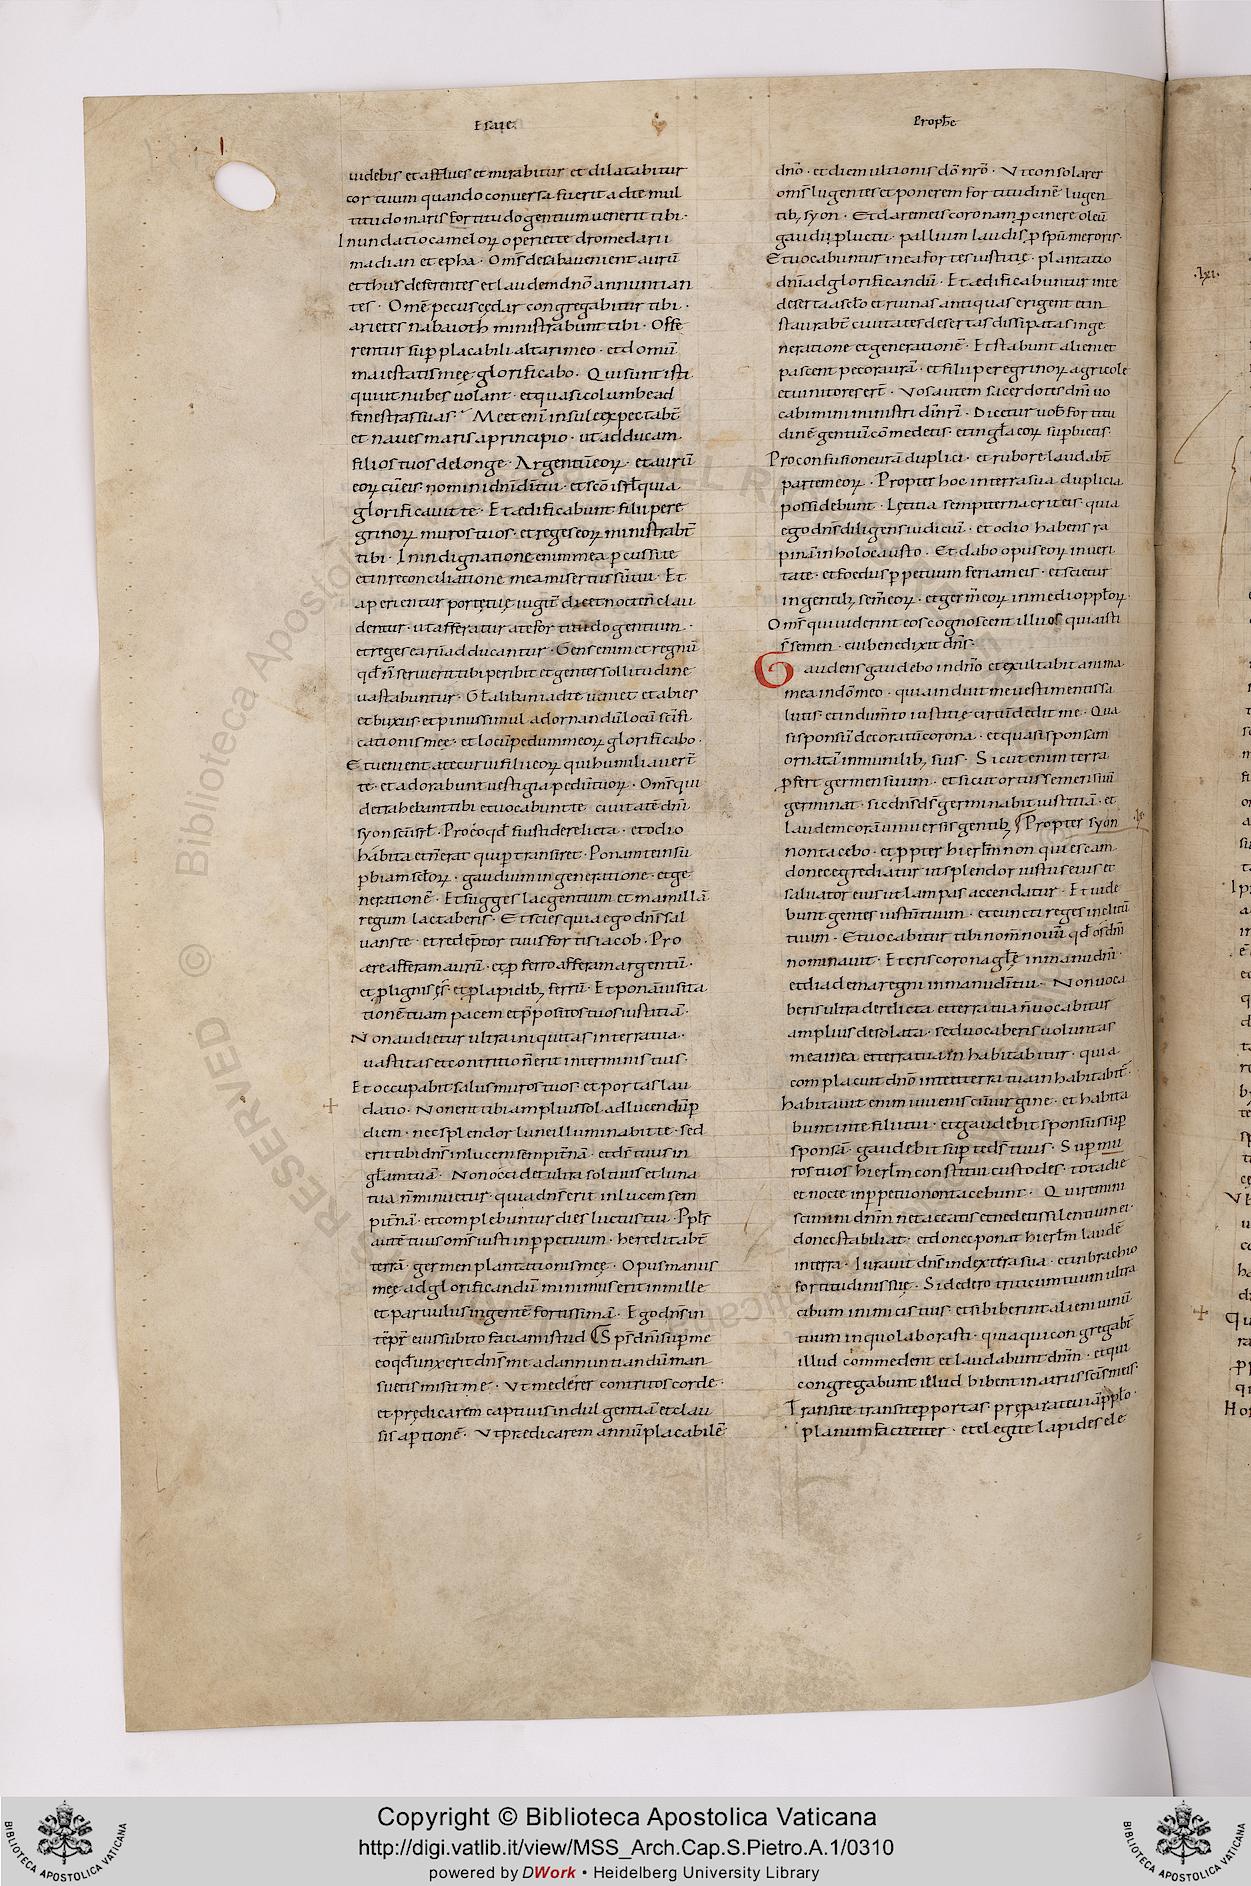 Esaie
uidebis et afflues et mirabitur et dilatabitur
cor tuum quando conuersa fuerit ad te mul
titudo maris fortitudo gentium uenerit tibi·
Inundatio camelorꝝ operiet te dromedarii
madian et epha· Om̅s de saba uenient aurū
et thus deferentes et laudem dn̅o annuntian
tes· Om̅e pecus cędar congregabitur tibi·
arietes nabaioth ministrabunt tibi· Offe
rentur sup̱ placabili altari meo· et domū
maiestatis męę glorificabo· Qui sunt isti
qui ut nubes uolant· et quasi columbę ad
fenestras suas· Me et eni̅ insulę expectab̅t
et naues maris a principio· ut adducam
filios tuos de longe· Argentū eorꝝ· et aurū
eorꝝ cū eis· nomini dn̅i dī tui· et sc̅o isrł quia
glorificauit te· Et ædificabunt filii pere
grinorꝝ muros tuos· et reges eorꝝ ministrab̅t
tibi· In indignatione enim mea ꝑcussi te
et in reconciliatione mea misertus sū tui· Et
aperientur portę tuę iugit̅ die et nocte n̅ clau
dentur· ut afferatur ad te fortitudo gentium·
et reges earū adducantur· Gens enim et regnū
qd̅ n̅ seruierit tibi peribit et gentes sollitudine
uastabuntur· Głā libani ad te ueniet et abies
et buxus et pinus simul ad ornandū locū sc̅ifi
cationis męę· et locū pedum meorꝝ glorificabo·
Et uenient ad te curui filii eorꝝ qui humiliauer̅t
te· et adorabunt uestigia pedū tuorꝝ· Om̅s qui
detrahebunt tibi et uocabunt te ciuitatē dn̅i
syon sc̅i isrł· Pro eo qd̅ fuisti derelicta· et odio
habita et n̅ erat qui ꝑ transiret· Ponam te in su
ꝑbiam sc̅lorꝝ· gaudium in generatione· et ge
nerationē· Et sugges lac gentium et mamilla
regum lactaberis· Et scies quia ego dn̅s sal
uans te· et redēptor tuus fortis iacob· Pro
aere afferam aurū· et ꝓ ferro afferam argentū·
et ꝓ lignis ęs· et ꝓ lapidib; ferrū· Et ponā uisita
tionē tuam pacem et p̅positos tuos iustitiā·
Non audietur ultra iniquitas in terra tua·
uastitas et contritio n̅ erit in terminis tuis·
Et occupabit salus muros tuos· et portas lau
datio· Non erit tibi amplius sol ad lucendū ꝑ
diem· nec splendor lunę illuminabit te· sed
erit tibi dn̅s in lucem sempit̅nā· et ds̅ tuus in
głām tuā· Non occidet ultra sol tuus et luna
tua n̅ minuetur· quia dn̅s erit in lucem sem
pit̅nā· et complebuntur dies luctus tui· Pplś
autē tuus om̅s iusti in ꝑpetuum· hereditab̅t
terrā· germen plantationis męę· Opus manus
męę ad glorificandū· minimus erit in mille
et paruulus in gentē fortissimā· Ego dn̅s in
tēpr̅ eius subito faciam istud Sps̅ dn̅i sup̱ me
eo qd̅ unxerit dn̅s me ad annuntiandū man
suetis misit me· Ut mederer contritos corde·
et prędicarem captiuis indulgentiā et clau
sis aꝑtionē· Ut prædicarem annū placabilē
Prophe̅
dn̅o· et diem ultionis dō nr̅o· Ut consolarer
om̅s lugentes et ponerem fortitudinē lugen
tib; syon· Et darem eis coronam ꝓ cinere oleū
gaudii ꝓ luctu· pallium laudis ꝓ spū meroris·
Et uocabuntur in ea fortes iustitię· plantatio
dn̅i ad glorificandū· Et ædificabuntur in te
deserta a sc̅lo et ruinas antiquas erigent et in
staurab̅t ciuitates desertas dissipatas in ge
neratione et generationē· Et stabunt alieni et
pascent pecora ur̅a· et filii peregrinorꝝ agricolę
et uinitores er̅t· Vos autem sacerdotes dn̅i uo
cabimini ministri dī nr̅i· Dicetur uob̅ fortitu
dinē gentiū cōmedetis et in głā eorꝝ suꝑbietis·
Pro confusione ur̅a duplici· et rubore laudab̅t
partem eorꝝ· Propter hoc in terra sua duplicia
possidebunt· Lętitia sempiterna erit eis· quia
ego dn̅s diligens iudiciū· et odio habens ra
pinā in holocausto· Et dabo opus eorꝝ in ueri
tate· et foedus ꝑpetuum feriam eis· et scietur
in gentib; sem̅ eorꝝ· et germ̅ eorꝝ in medio pplorꝝ·
Om̅s qui uiderint eos cognoscent illos quia isti
s̅ semen· cui benedixit dn̅s·
Gaudens gaudebo in dn̅o et exultabit anima
mea in dō meo· quia induit me uestimentis sa
lutis· et indum̅to iustitię circūdedit me· Qua
si sponsū decoratū corona· et quasi sponsam
ornatā in munilib; suis· Sicut enim terra
ꝓfert germen suum· et sicut ortus semen suū
germinat· sic dn̅s ds̅ germinabit iustitiā· et
laudem coram uniuersis gentib; Propter syon
non tacebo· et ꝓpter hierlm̅ non quiescam·
donec egrediatur ut splendor iustus eius et
saluator eius ut lampas accendatur· Et uide
bunt gentes iustum tuum· et cuncti reges inclitū
tuum· Et uocabitur tibi nom̅ nouū qd̅ os dn̅i
nominauit· Et eris corona głę in manu dn̅i·
et diadema regni in manu dī tui· Non uoca
beris ultra derelicta et terra tua n̅ uocabitur
amplius desolata· sed uocaberis uoluntas
mea in ea et terra tua inhabitabitur· quia
complacuit dn̅o in te et terra tua inhabitab̅t·
habitauit enim iuuenis cū uirgine· et habita
bunt in te filii tui· et gaudebit sponsus sup̱
sponsā· gaudebit sup̱ te ds̅ tuus· Sup̱ mu
ros tuos hierlm̅ constitui custodes· tota die
et nocte in ꝑpetuo non tacebunt· Qui remini
scimini dn̅m ne taceatis et ne detis silentium ei·
donec stabiliat· et donec ponat hierlm̅ laudē
in terra· Iurauit dn̅s in dextera sua· et in brachio
fortitudinis suę· Si dedero triticum tuum ultra
cibum inimicis tuis· et si biberint alieni uinū
tuum in quo laborasti· quia qui congregab̅t
illud commedent et laudabunt dn̅m· et qui
congregabunt illud bibent in atriis sc̅is meis·
Transite transite ꝑ portas· pręparate uiā ppło·
planum facite iter· et elegite lapides ele
·lxi·
Copyright © Biblioteca Apostolica Vaticana
http://digi.vatlib.it/view/MSS_Arch.Cap.S.Pietro.A.1/0310
powered by DWork • Heidelberg University Library